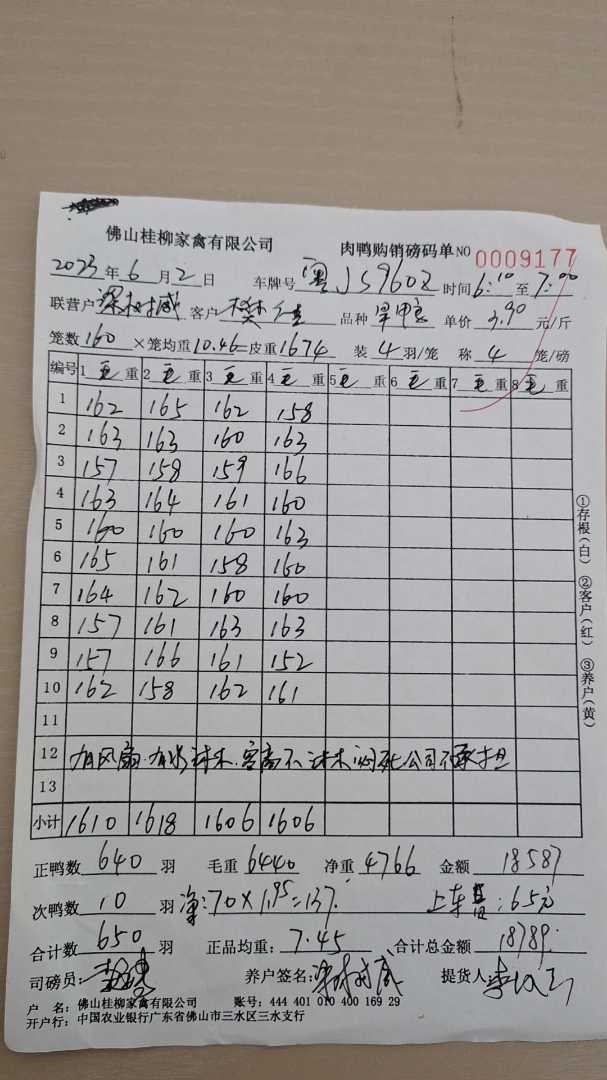 佛山桂柳家禽有限公司 肉鸭购销磅码单 NO 0009177
2023年6月2日 车牌号 粤JS9602 时间6:10至7:00
联营户 梁树威 客户 品种 单价 3.90 元/斤
笼数 160 ×笼均重 10.46=皮重 1674 装 4 羽/笼 称 4 笼/磅
编号 1 毛 重 2 毛 重 3 毛 重 4 毛 重 5 毛 重 6 毛 重 7 毛 重 8 毛 重
1 162 165 162 158
2 163 163 160 163
3 157 158 159 166
4 163 164 161 160
5 160 160 160 163
6 165 161 158 160
7 164 162 160 160
8 157 161 163 163
9 157 166 161 152
10 162 158 162 161
11
12 有风扇.有水 公司不承担
13
小计 1610 1618 1606 1606
正鸭数 640 羽 毛重 6440 净重 4766 金额 18587
次鸭数 10 羽 净:70×1.95=137. 上车费:65元
合计数 650 羽 正品均重: 7.45 合计总金额 18789.
司磅员: 养户签名: 梁树威 提货人
户 名: 佛山桂柳家禽有限公司 账号: 444 401 010 400 169 29
开户行: 中国农业银行广东省佛山市三水区三水支行
①存根(白) ②客户(红) ③养户(黄)